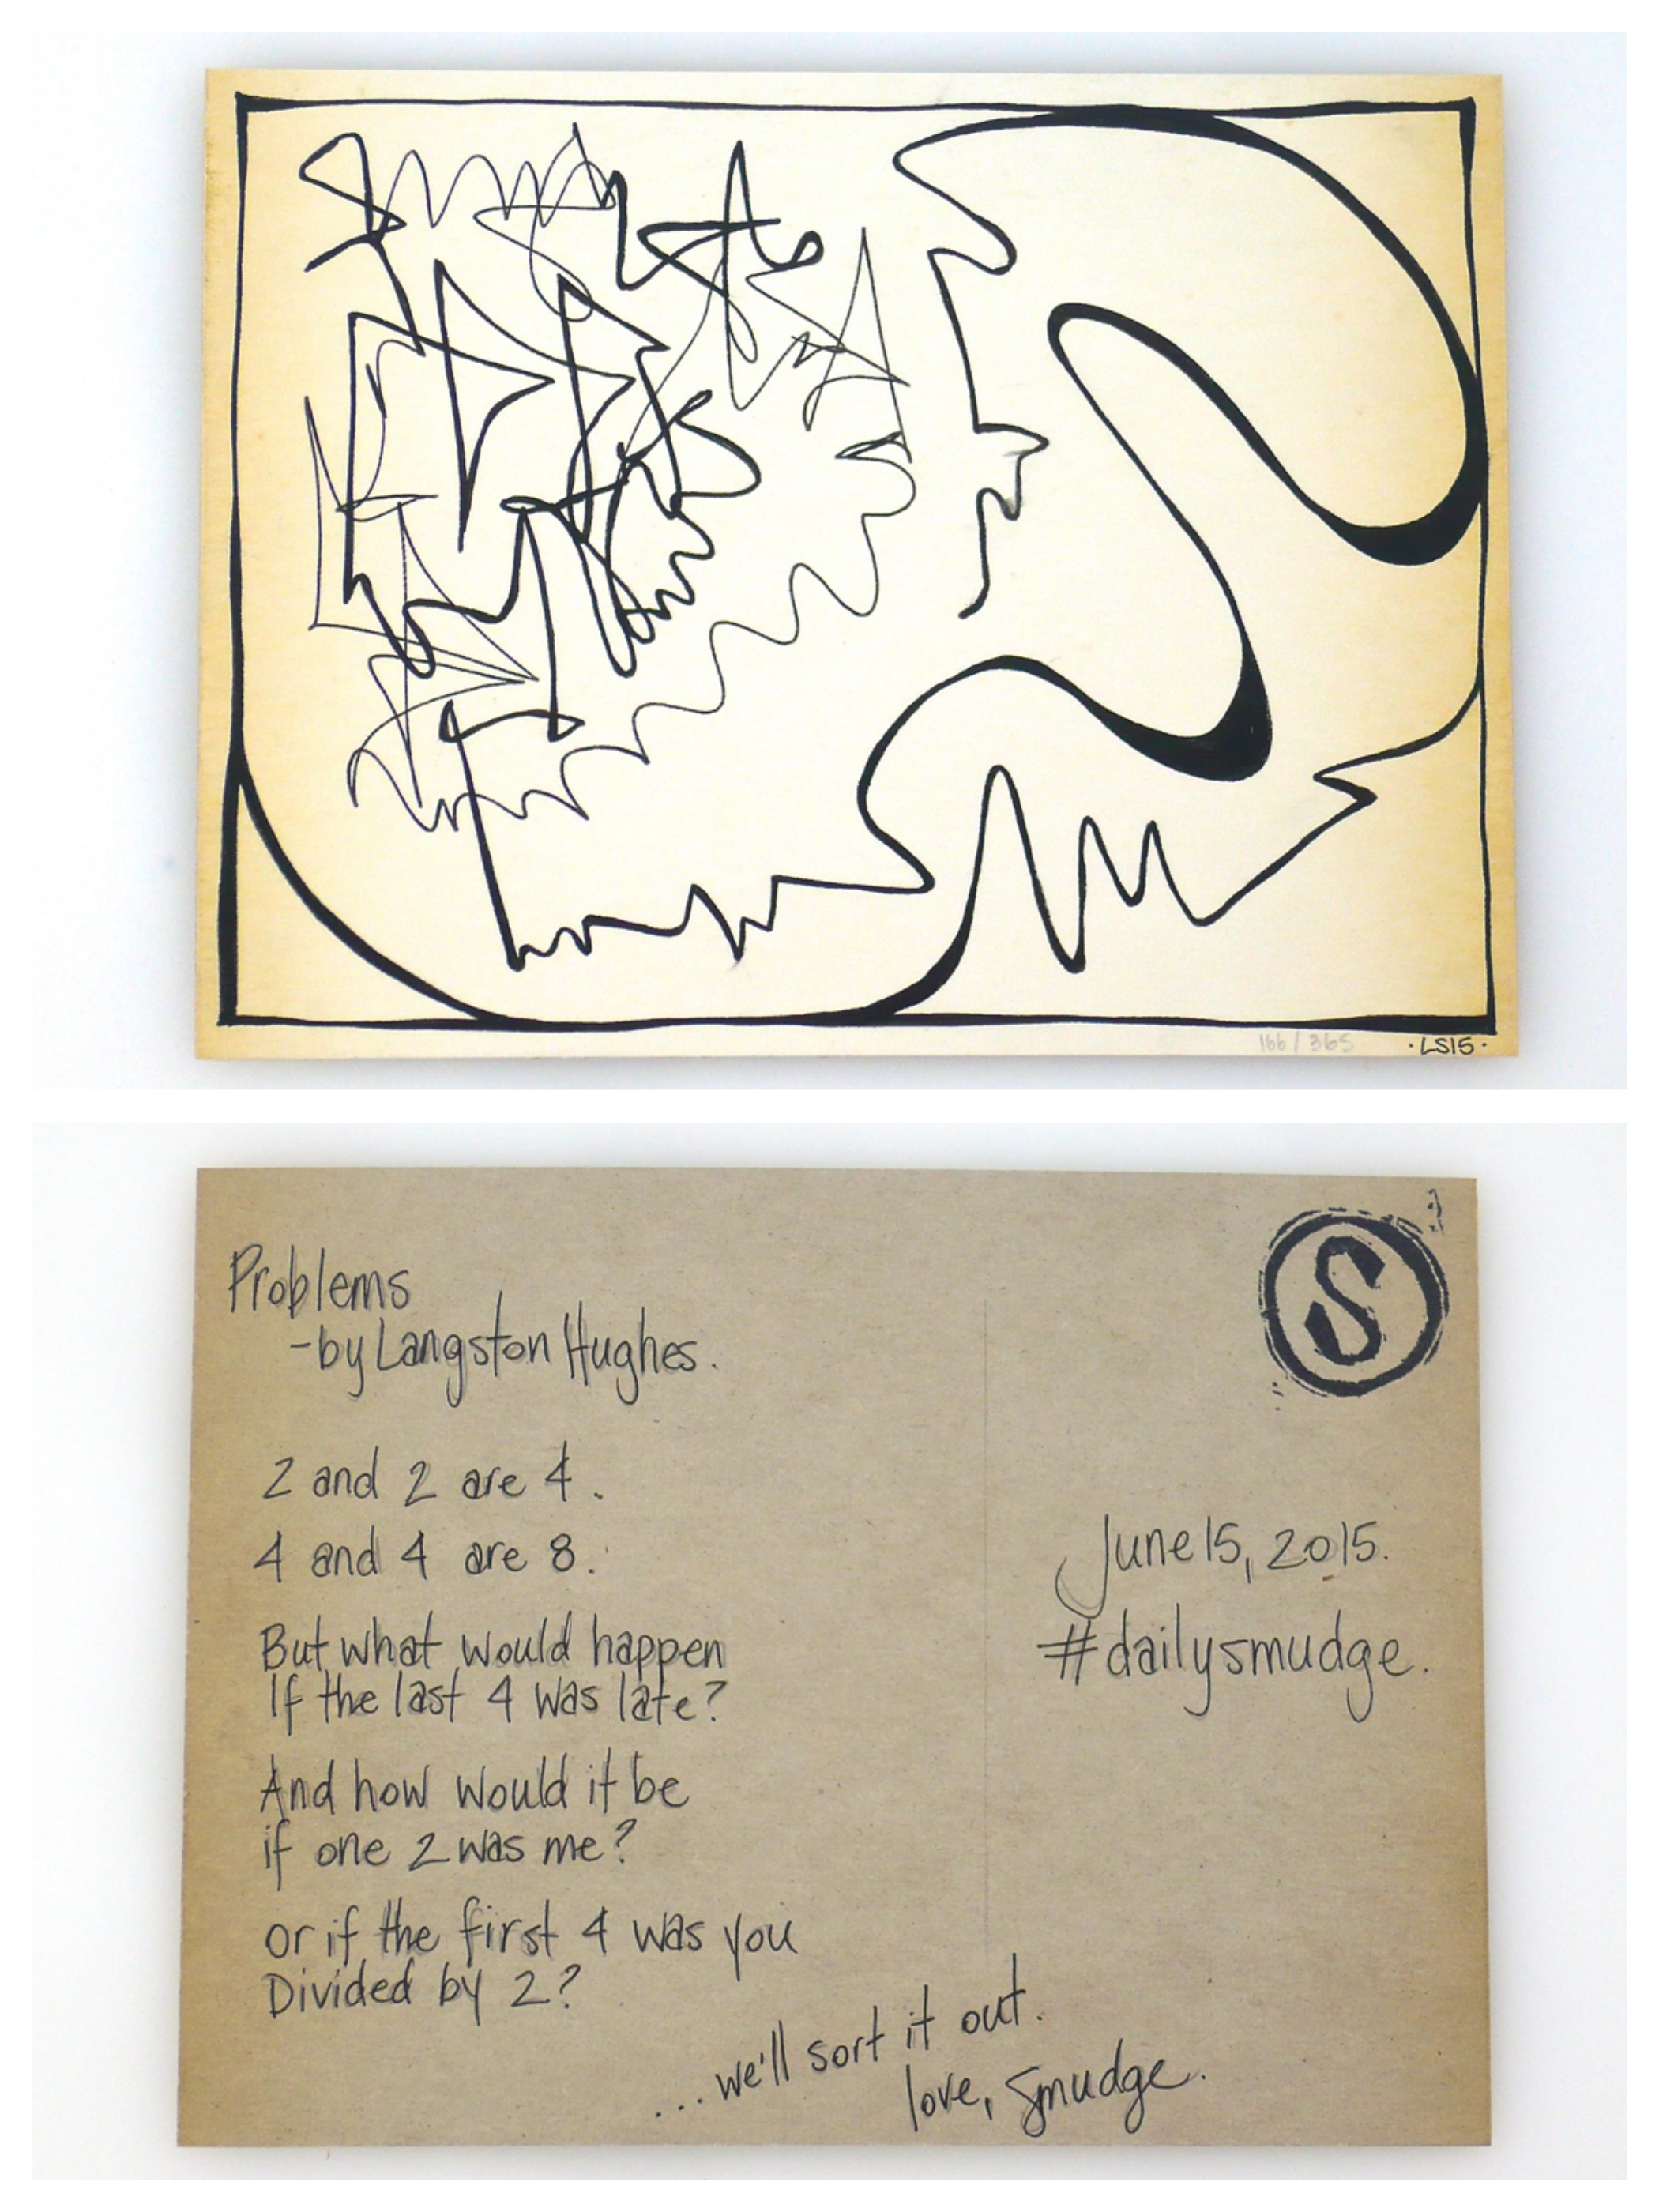 166/365
·LS15·
S
Problems
-by Langston Hughes.
2 and 2 are 4.
4 and 4 are 8.
But what would happen
If the last 4 was late?
And how would it be
if one 2 was me?
or if the first 4 was you
Divided by 2?
...we'll sort it out.
love, Smudge.
June 15, 2015.
#dailysmudge.